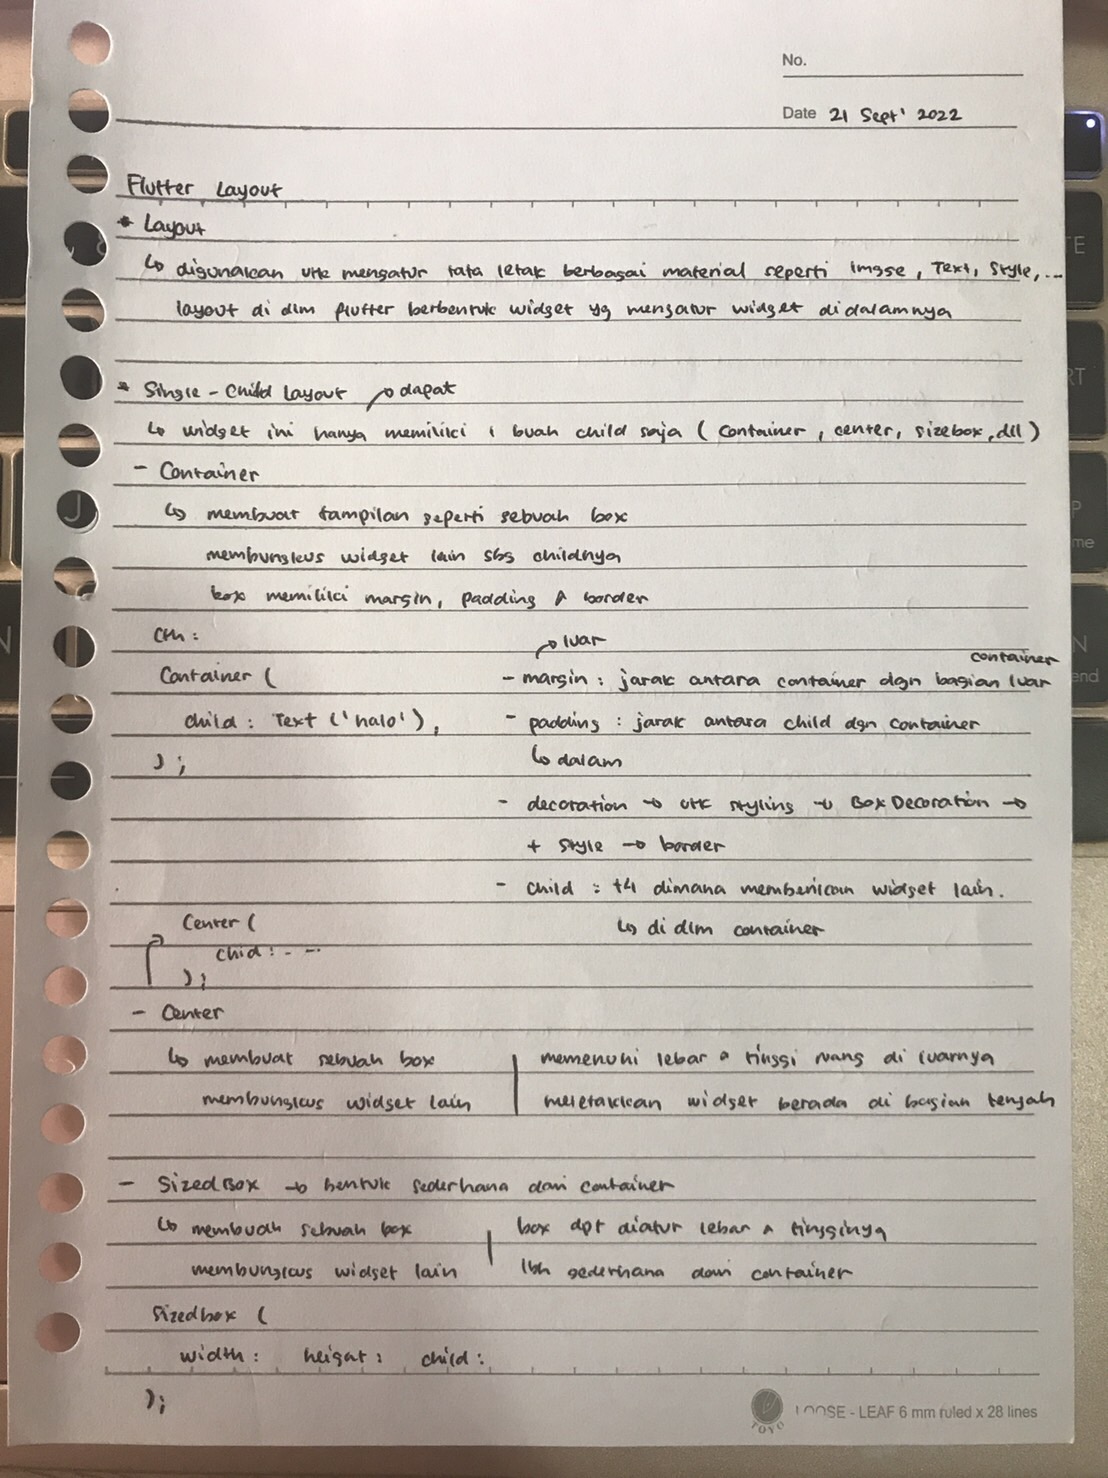 No.
Date 21 Sept' 2022
Flutter Layout
* Layout
↳ digunakan utk mengatur tata letak berbagai material seperti Image, Text, Style, ...
layout di dlm flutter berbentuk widget yg mengatur widget didalamnya
* Single-Child Layout → dapat
↳ widget ini hanya memiliki 1 buah child saja (Container, center, sizebox, dll)
- Container
↳ membuat tampilan seperti sebuah box
membungkus widget lain sbg childnya
box memiliki margin, padding & border
Cth :
Container (
child : Text ('halo'),
);
→ luar
container
- margin : jarak antara container dgn bagian luar
- padding : jarak antara child dgn container
↳ dalam
- decoration → utk styling → BoxDecoration →
+ style → border
- child : t4 dimana memberikan widget lain.
↳ di dlm container
Center (
chid : - ---
);
- Center
↳ membuat sebuah box
membungkus widget lain
memenuhi lebar & tinggi ruang di luarnya
meletakkan widget berada di bagian tengah
- SizedBox → bentuk sederhana dari container
↳ membuah sebuah box
membungkus widget lain
box dpt diatur lebar & tingginya
lbh sederhana dari container
Sizedbox (
width : height : child :
);
TOYO
LOOSE - LEAF 6 mm ruled x 28 lines